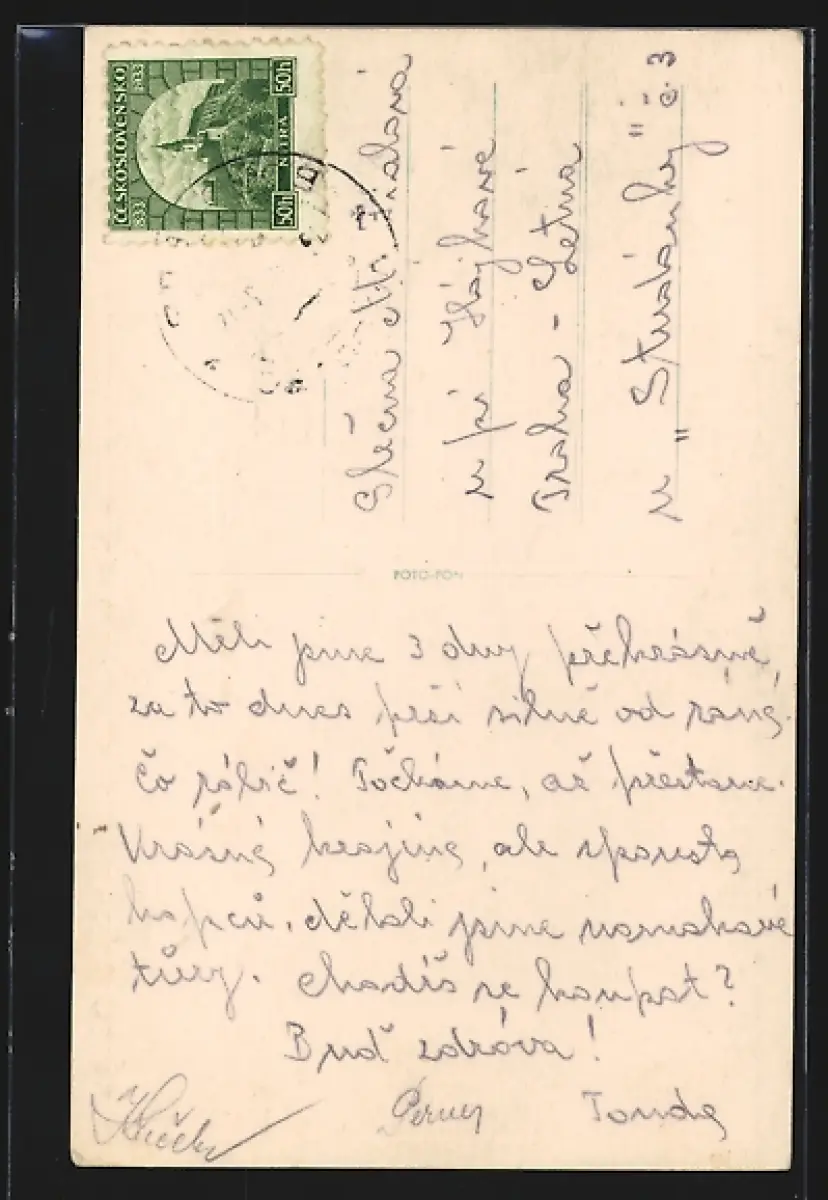 ČESKOSLOVENSKO
833 1933
50h NITRA 50h
Slečna
u pí Hájkové
Praha - Letná
u „Studánky" č. 3
FOTO-FON
Měli jsme 3 dny překrásně,
za to dnes prší silně od rána.
Čo robíš! Počkáme, až přestane.
Krásná krajina, ale spousta
kopců. dělali jsme namahavé
túry. Chodíš se koupat?
Buď zdráva!
Tonda